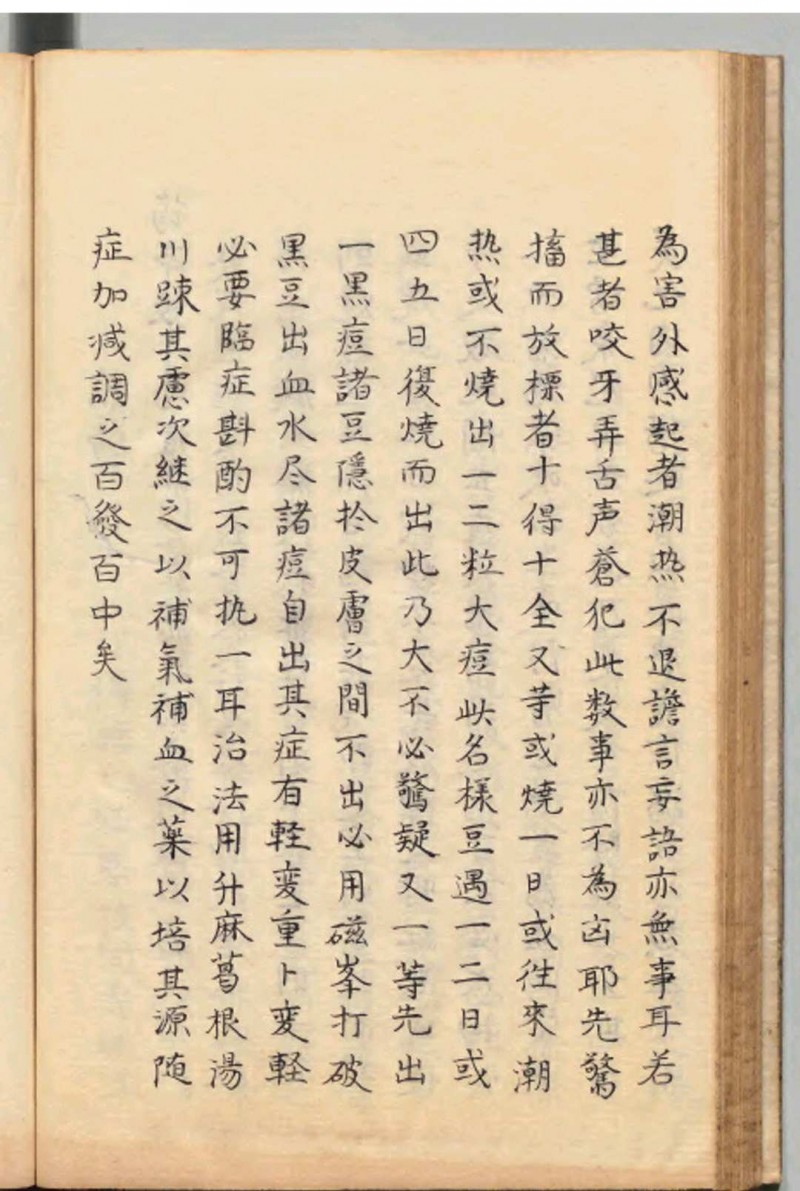 為害外感起者潮热不退譫言妄語亦無事耳若
甚者咬牙弄舌声蒼犯此数事亦不為凶耶先驚
搐而放標者十得十全又等或燒一日或徃來潮
热或不燒出一二粒大痘此名樣豆遇一二日或
四五日復燒而出此乃大不必驚疑又一等先出
一黒痘諸豆隱扵皮膚之間不出必用磁峯打破
黒豆出血水尽諸痘自出其症有軽変重卜変軽
必要臨症斟酌不可执一耳治法用升麻葛根湯
川踈其慮次継之以補氣補血之藥以培其源随
症加减調之百發百中矣